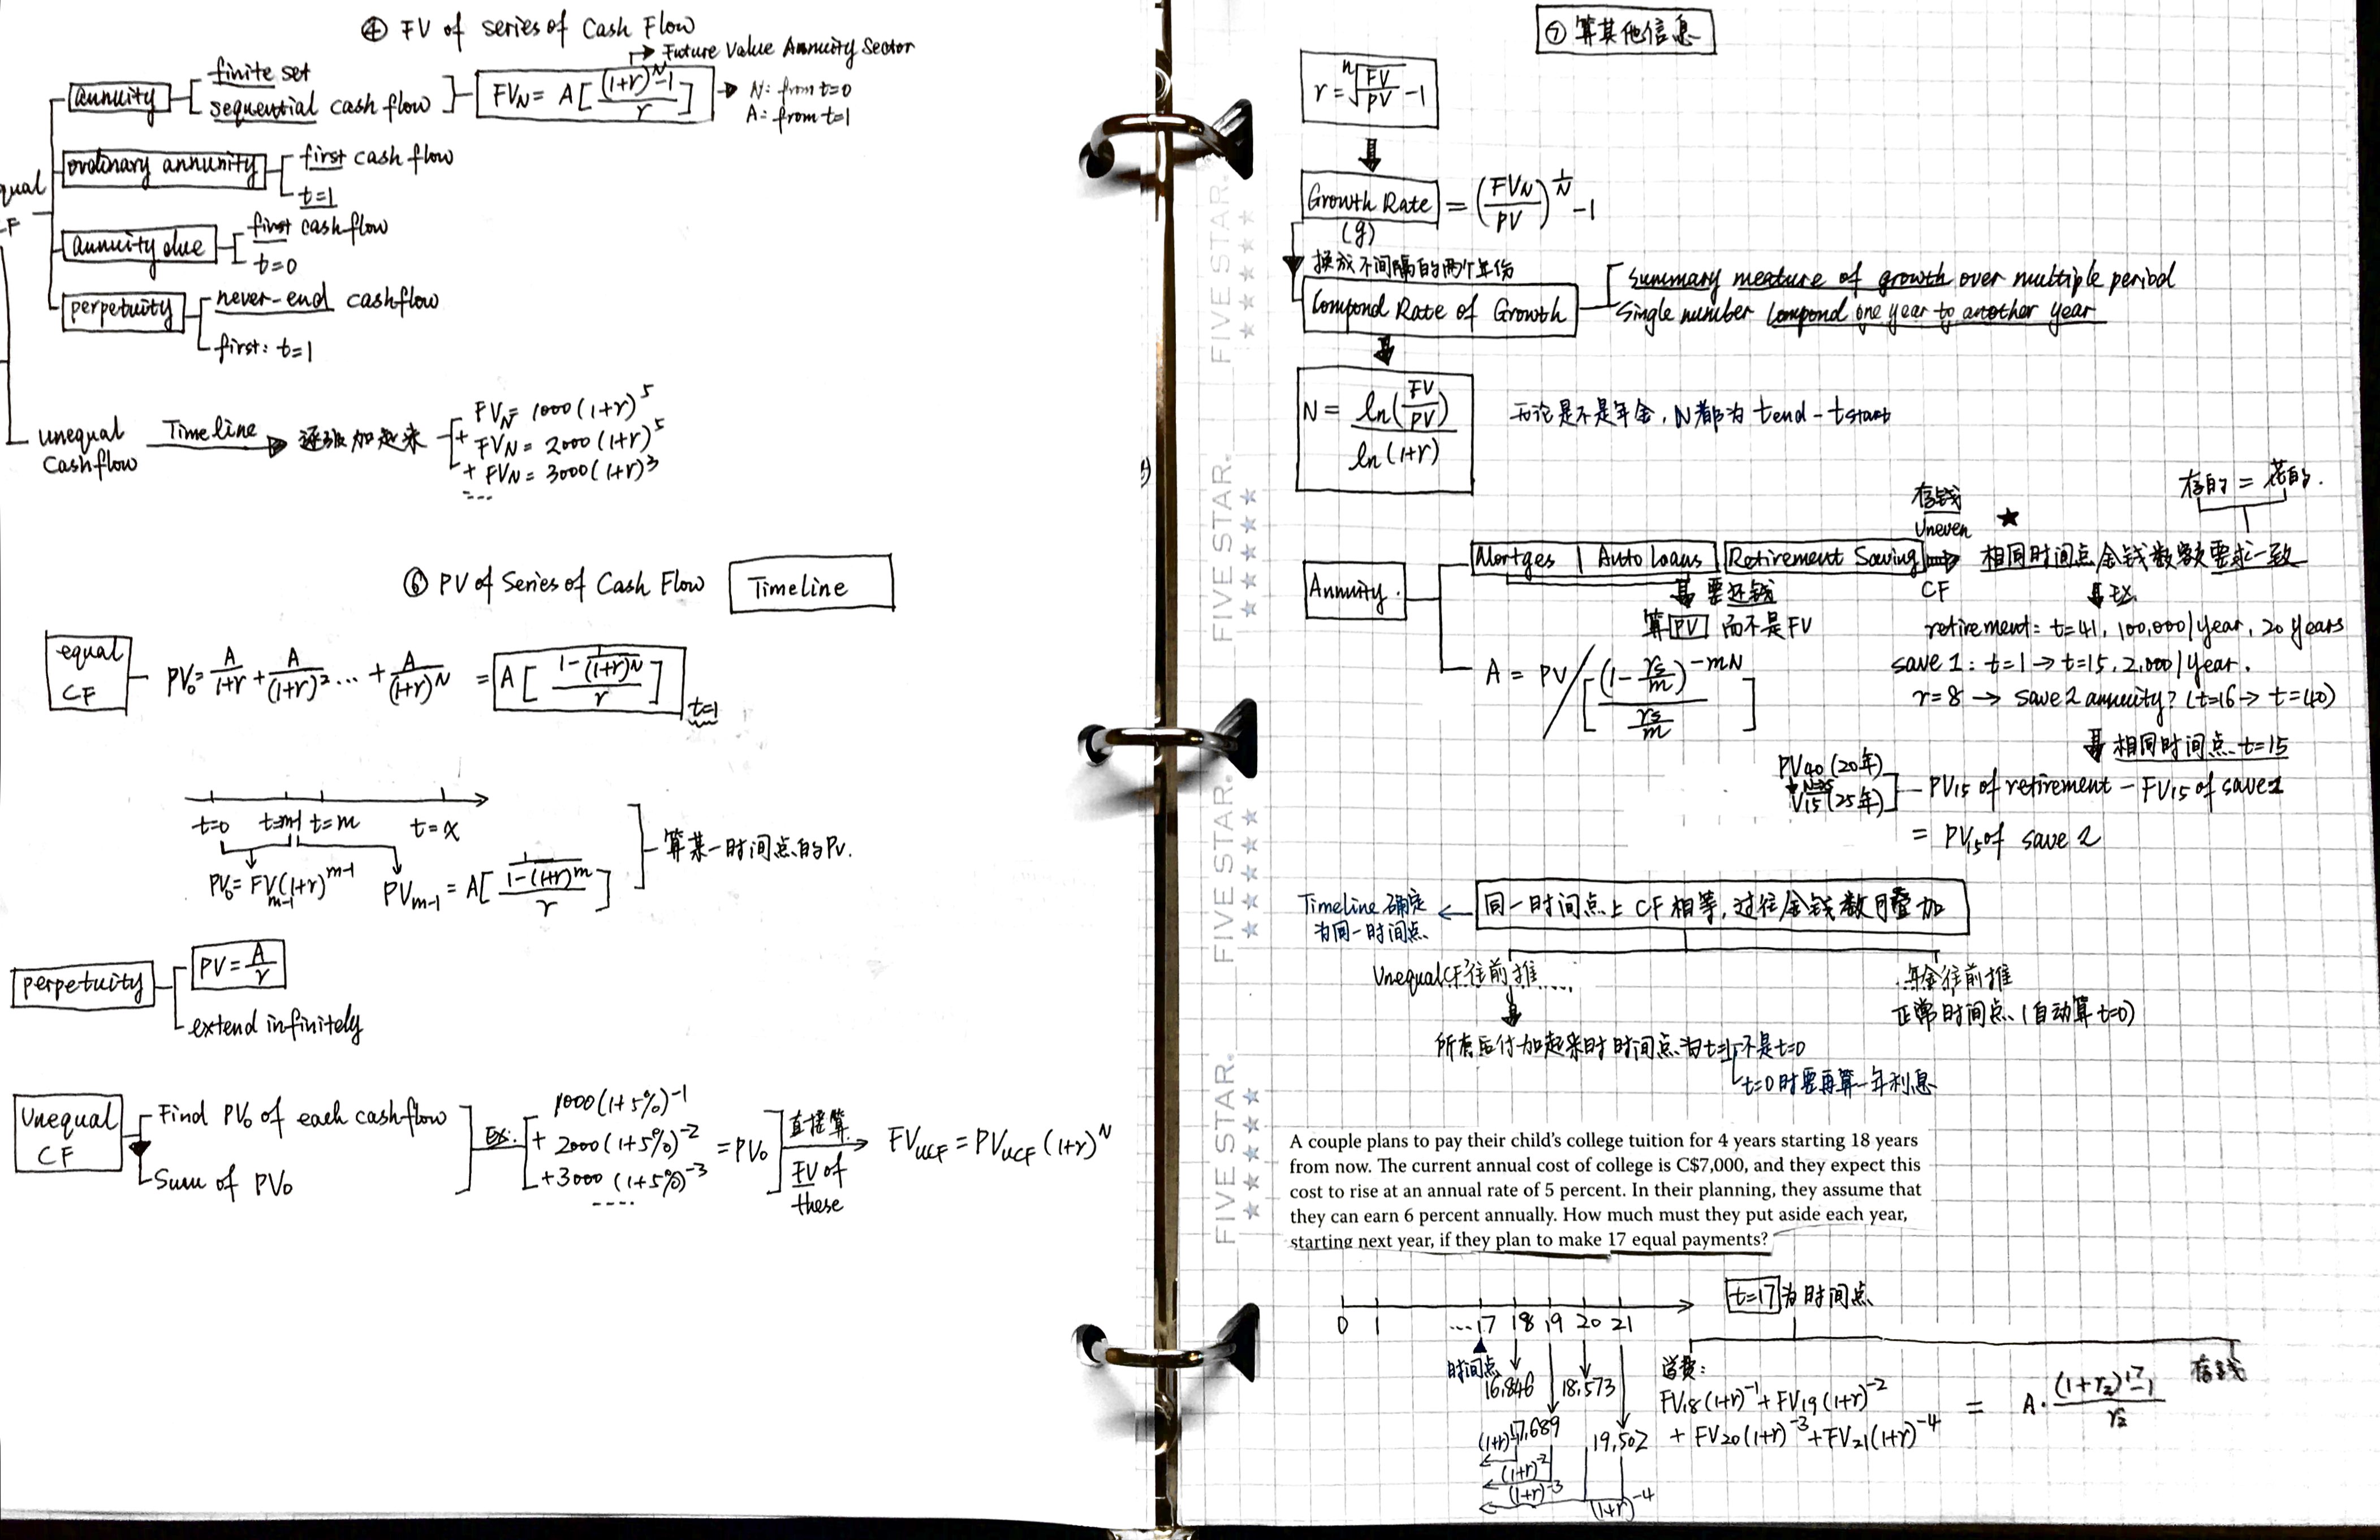 ④ FV of series of Cash Flow
Future Value Annuity Sector
annuity
finite set
sequential cash flow
FV_N = A[((1+r)^N-1)/r]
N: from t=0
A: from t=1
ordinary annunity
first cash flow
t=1
qual
F
annuity due
first cashflow
t=0
perpetuity
never-end cashflow
first: t=1
unequal
Cashflow
Timeline
加起来
FV_N = 1000(1+r)^5
+ FV_N = 2000(1+r)^5
+ FV_N = 3000(1+r)^3
....
⑥ PV of Series of Cash Flow
Timeline
equal
CF
PV_0 = A/(1+r) + A/(1+r)^2 ... + A/(1+r)^N = A[(1-1/(1+r)^N)/r]
t=1
t=0 t=m-1 t=m t=x
PV_0 = FV_{m-1}(1+r)^{m-1}
PV_{m-1} = A[
算某一时间点的PV.
perpetuity
PV = A/r
extend infinitely
Unequal
CF
Find PV_0 of each cashflow
Sum of PV_0
Ex:
1000(1+5%)^-1
+ 2000(1+5%)^-2
+3000(1+5%)^-3
....
= PV_0
直接算
FV of
these
FV_UCF = PV_UCF (1+r)^N
⑦ 算其他信息
r = n√(FV/PV) -1
Growth Rate = (FV_N/PV)^(1/N) -1
(g)
换成不间隔的两个年份
Compond Rate of Growth
Summary meature of growth over multiple period
Single number Compond one year to another year
N = ln(FV/PV)/ln(1+r)
无论是不是年金，N都为 t end - t start
Annuity.
Mortges | Auto Loans | Retirement Saving
存钱
Uneven
CF
★
存的 = 花的.
相同时间点金钱数额要求一致
要还钱
算PV 而不是FV
A = PV/[(1-rs/m)^-mN/(rs/m)]
Ex.
retirement: t=41, 100,000/year, 20 years
save 1: t=1 → t=15, 2,000/year.
r=8 → save 2 annuity? (t=16 → t=40)
相同时间点 t=15
PV_40 (20年)
V_15 (25年)
PV_15 of retirement - FV_15 of save 1
= PV_15 of save 2
Timeline 确定
为同一时间点
同一时间点上 CF 相等, 过往金钱数目叠加
Unequal CF往前推.....
年金往前推
正常时间点 (自动算 t=0)
所有后付加起来时时间点为t=1, 不是t=0
t=0时要再算一年利息
A couple plans to pay their child's college tuition for 4 years starting 18 years
from now. The current annual cost of college is C$7,000, and they expect this
cost to rise at an annual rate of 5 percent. In their planning, they assume that
they can earn 6 percent annually. How much must they put aside each year,
starting next year, if they plan to make 17 equal payments?
t=17 为时间点
0 1 ...17 18 19 20 21
时间点
16,846
18,573
17,689
19,502
(1+r)^-1
(1+r)^-2
(1+r)^-3
(1+r)^-4
学费:
FV_18(1+r)^-1 + FV_19(1+r)^-2
+ FV_20(1+r)^-3 + FV_21(1+r)^-4
= A·((1+r_2)^17-1)/r_2
存钱
FIVE STAR.
FIVE STAR.
FIVE STAR.
FIVE STAR.